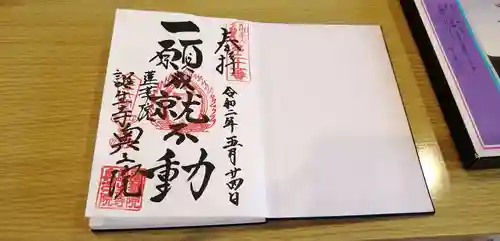 奉拝
令和二年五月廿四日
一願成就不動
蓮華蔵
誕生寺奥之院